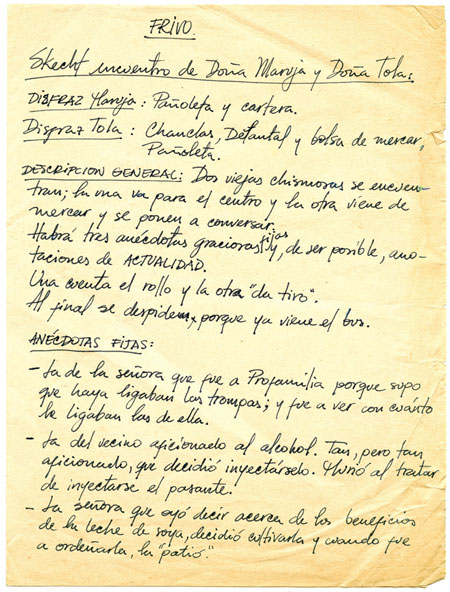 FRIVO.
Skecht encuentro de Doña Maruja y Doña Tola:
DISFRAZ Maruja: Pañoleta y cartera.
Disfraz Tola: Chanclas, Delantal y bolsa de mercar,
Pañoleta.
DESCRIPCION GENERAL: Dos viejas chismosas se encuen-
tran; la una va para el centro y la otra viene de
mercar y se ponen a conversar.
Habrá tres anécdotas graciosas fijas y, de ser posible, ano-
taciones de ACTUALIDAD.
Una cuenta el rollo y la otra "da tiro".
Al final se despiden, porque ya viene el bus.
ANÉCDOTAS FIJAS:
- La de la señora que fue a Profamilia porque supo
que haya ligaban las trompas; y fue a ver con cuánto
le ligaban las de ella.
- La del vecino aficionado al alcohol. Tan, pero tan
aficionado, que decidió inyectárselo. Murió al tratar
de inyectarse el pasante.
- La señora que oyó decir acerca de los beneficios
de la leche de soya, decidió cultivarla y cuando fue
a ordeñarla, la "patió".